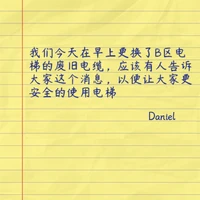 我们今天在早上更换了B区电
梯的废旧电缆，应该有人告诉
大家这个消息，以便让大家更
安全的使用电梯
Daniel